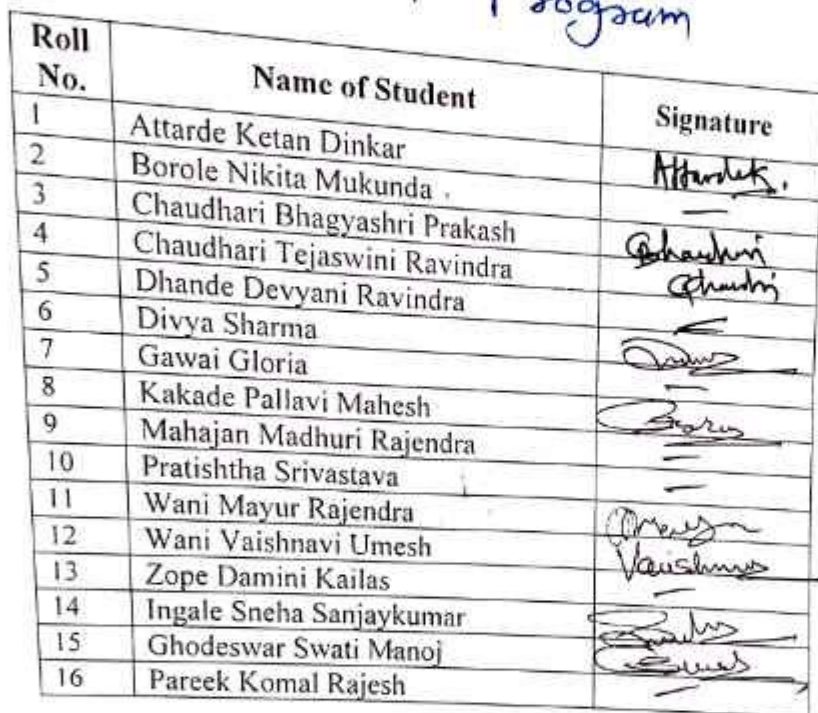 Program
Roll No. Name of Student Signature
1 Attarde Ketan Dinkar Attardek.
2 Borole Nikita Mukunda —
3 Chaudhari Bhagyashri Prakash
4 Chaudhari Tejaswini Ravindra
5 Dhande Devyani Ravindra —
6 Divya Sharma
7 Gawai Gloria —
8 Kakade Pallavi Mahesh
9 Mahajan Madhuri Rajendra —
10 Pratishtha Srivastava —
11 Wani Mayur Rajendra
12 Wani Vaishnavi Umesh
13 Zope Damini Kailas —
14 Ingale Sneha Sanjaykumar
15 Ghodeswar Swati Manoj
16 Pareek Komal Rajesh —